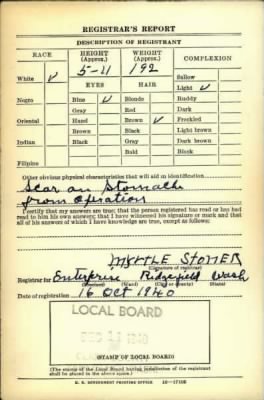 REGISTRAR'S REPORT
DESCRIPTION OF REGISTRANT
RACE HEIGHT (Approx.) WEIGHT (Approx.) COMPLEXION
5-11 192
White ✓ EYES HAIR Sallow
Light ✓
Negro Blue ✓ Blonde Ruddy
Gray Red Dark
Oriental Hazel Brown ✓ Freckled
Brown Black Light brown
Indian Black Gray Dark brown
Bald Black
Filipino
Other obvious physical characteristics that will aid in identification
Scar on Stomach
from Operation
I certify that my answers are true; that the person registered has read or has had
read to him his own answers; that I have witnessed his signature or mark and that
all of his answers of which I have knowledge are true, except as follows:
MYRTLE STONER
(Signature of registrar)
Registrar for Enterprise Ridgefield Wash
(Precinct) (Ward) (City or County) (State)
Date of registration 16 Oct 1940
LOCAL BOARD
1940
(STAMP OF LOCAL BOARD)
(The stamp of the Local Board having jurisdiction of the registrant
shall be placed in the above space.)
U. S. GOVERNMENT PRINTING OFFICE 16—17105